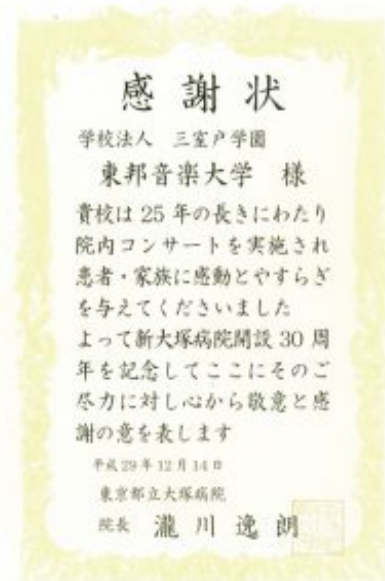 感謝状
学校法人 三室戸学園
東邦音楽大学 様
貴校は 25 年の長きにわたり
院内コンサートを実施され
患者・家族に感動とやすらぎ
を与えてくださいました
よって新大塚病院開設 30 周
年を記念してここにそのご
尽力に対し心から敬意と感
謝の意を表します
平成29年12月14日
東京都立大塚病院
院長 瀧川逸朗